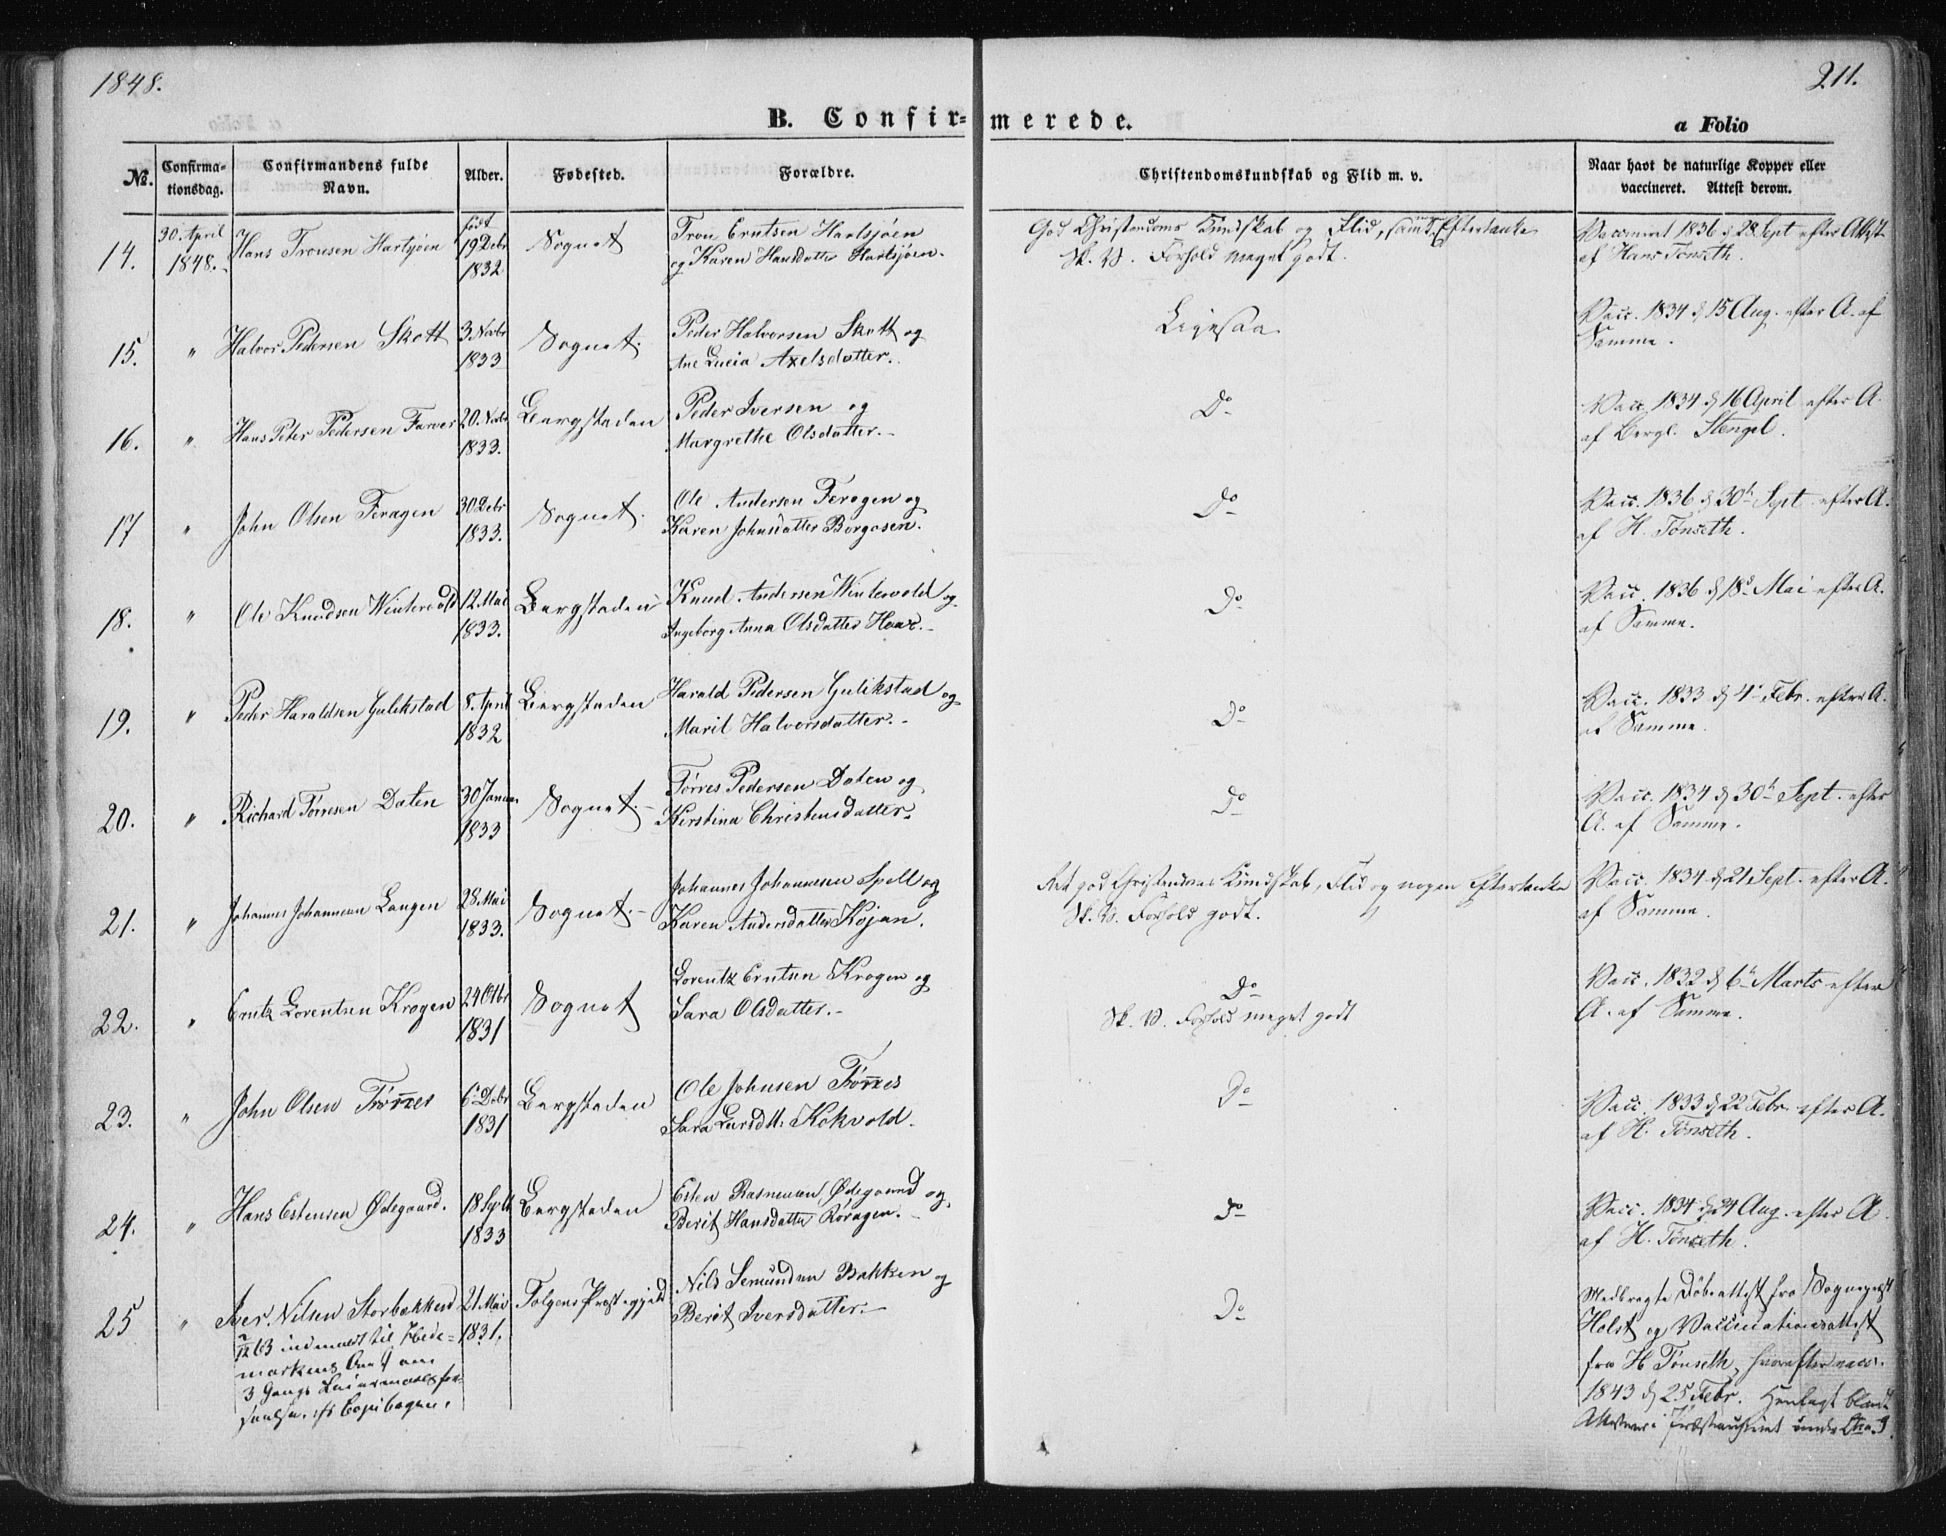 1848.
211.
B. Confir-merede.
a Folio
No.
Confirma-tionsdag.
Confirmandens fulde Navn.
Alder.
Fødested.
Forældre.
Christendomskundskab og Flid m. v.
Naar havt de naturlige Kopper eller vaccineret. Attest derom.
14.
30. April 1848.
Hans Tronsen Hartsjøen
født 19 Debr 1832
Sognet
Tron Erntsen Hartsjøen
og Karen Hansdatter Hartsjøen.
God Christendoms Kundskab og Flid, samt Eftertanke
Sk. V. Forhold meget godt.
Vaccineret 1836 d 28 Sept efter Attest
af Hans Tønseth.
15.
"
Halvor Pedersen Skott
3 Novbr 1833
Sognet.
Peder Halvorsen Skott og
Ane Lucia Axelsdatter.
Ligesaa
Vacc. 1834 d 15 Aug. efter A. af
Samme.
16.
"
Hans Peter Pedersen Farver
20. Novbr 1833.
Bergstaden
Peder Iversen og
Margrethe Olsdatter.
Do
Vacc. 1834 d 16 April efter A.
af Bergl. Stengel.
17
"
John Olsen Feragen
30 Debr 1833.
Sognet.
Ole Andersen Feragen og
Karen Johnsdatter Borgosen.
Do
Vacc. 1836 d 30te Sept. efter A.
af H. Tønseth.
18.
"
Ole Knudsen Wintervold
12. Mai 1833.
Bergstaden
Knud Andersen Wintervold og
Ingeborg Anna Olsdatter Hoas.
Do
Vacc. 1836 d 18d Mai efter A.
af Samme.
19.
"
Peder Haraldsen Gulikstad
8. April 1832
Bergstaden
Harald Pedersen Gulikstad og
Marit Halvorsdatter.
Do
Vacc. 1833 d 4de Febr. efter A.
af Samme.
20.
"
Richard Tørresen Daten
30 Januar 1833
Sognet.
Tørres Pedersen Daten og
Kerstina Christensdatter.
Do
Vacc. 1834 d 30te Sept. efter
A. af Samme.
21.
"
Johannes Johannesen Langen
28. Mai 1833.
Sognet.
Johannes Johannesen Spell og
Karen Andersdatter Kojan.
Ret god Christendoms Kundskab, Flid og nogen Eftertanke
Sk. V. Forhold godt.
Vacc. 1834 d 21 Sept. efter A.
af Samme.
22.
"
Erntz Lorentsen Krogen
24 Otbr 1831
Sognet
Lorentz Erntsen Krogen og
Sara Olsdatter.
Do
Sk. V. Forhold meget godt
Vacc. 1832 d 6te Marts efter
A. af Samme.
23.
"
John Olsen Trønnes
6 Debr 1831
Bergstaden
Ole Johnsen Trønnes
Sara Larsdtt: Kokvold.
Do
Vacc. 1833 d 22 Febr. efter A.
af H. Tønseth.
24.
"
Hans Estensen Ødegaard.
18 Septb 1833
Bergstaden
Esten Rasmusen Ødegaard og
Berit Hansdatter Røragen.
Do
Vacc. 1834 d 24 Aug. efter A
af H. Tønseth.
25
"
Iver Nilsen Storbækken
21 Mai 1831.
Tolgens Præstegjeld
Nils Semundsen Bakken og
Berit Iversdatter.
Do
Medbragte Døbeattest fra Sognepræst
Holst og Vaccinationsattest
fra H Tønseth, hvorefter vacc.
1843 d 25 Febr. Henlagt blandt
Attester i Præstearchivet under Litra I.
63 indmeldt til Hede-
markens Amt om
3 Gangs Leiermaals for-
seelse. cfr Copibogen.